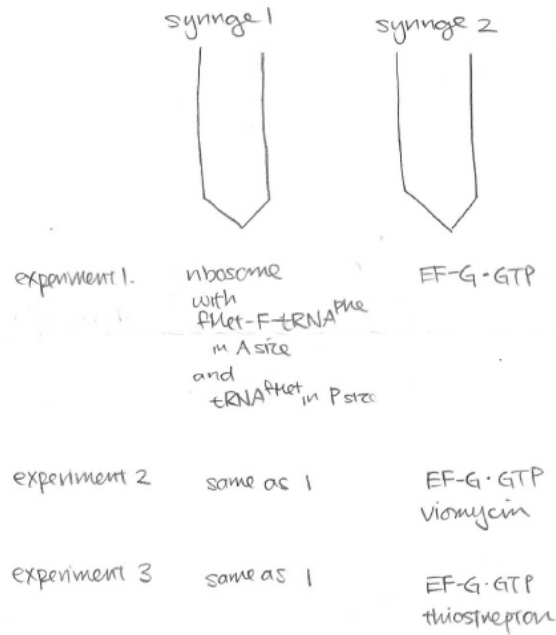 syringe 1 syringe 2
experiment 1. ribosome EF-G·GTP
with
fMet-F-tRNA^Phe
in A site
and
tRNA^fMet in P site
experiment 2 same as 1 EF-G·GTP
viomycin
experiment 3 same as 1 EF-G·GTP
thiostrepton